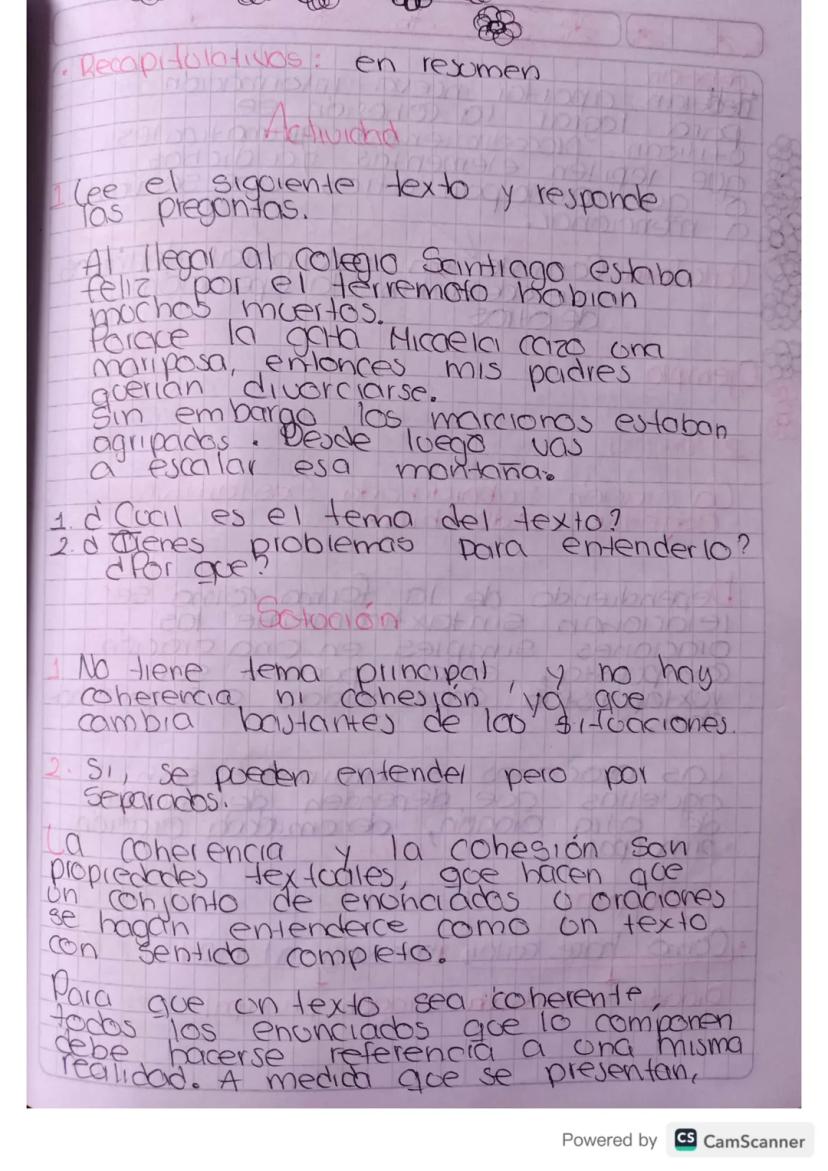 . Recapitulativos: en resumen
Actividad
1 Lee el siguiente texto y responde
las preguntas.
Al llegar al colegio Santiago estaba
feliz por el terremoto habian
muchos muertos.
Porque la gata Micaela cazo una
mariposa, entonces mis padres
querian divorciarse.
Sin embargo los marcianos estaban
agripados. Desde luego vas
a escalar esa montaña.
1. ¿Cual es el tema del texto?
2. ¿Tienes problemas para entenderlo?
¿Por que?
Solución
1 No tiene tema principal, y no hay
coherencia ni cohesión, ya que
cambia bastantes de las situaciones.
2. Si, se pueden entender pero por
separados.
La coherencia y la cohesión son
propiedades textuales, que hacen que
un conjunto de enunciados u oraciones
se hagan entenderce como un texto
con sentido completo.
Para que un texto sea coherente,
todos los enunciados que lo componen
debe hacerse referencia a una misma
realidad. A medida que se presentan,
Powered by CS CamScanner